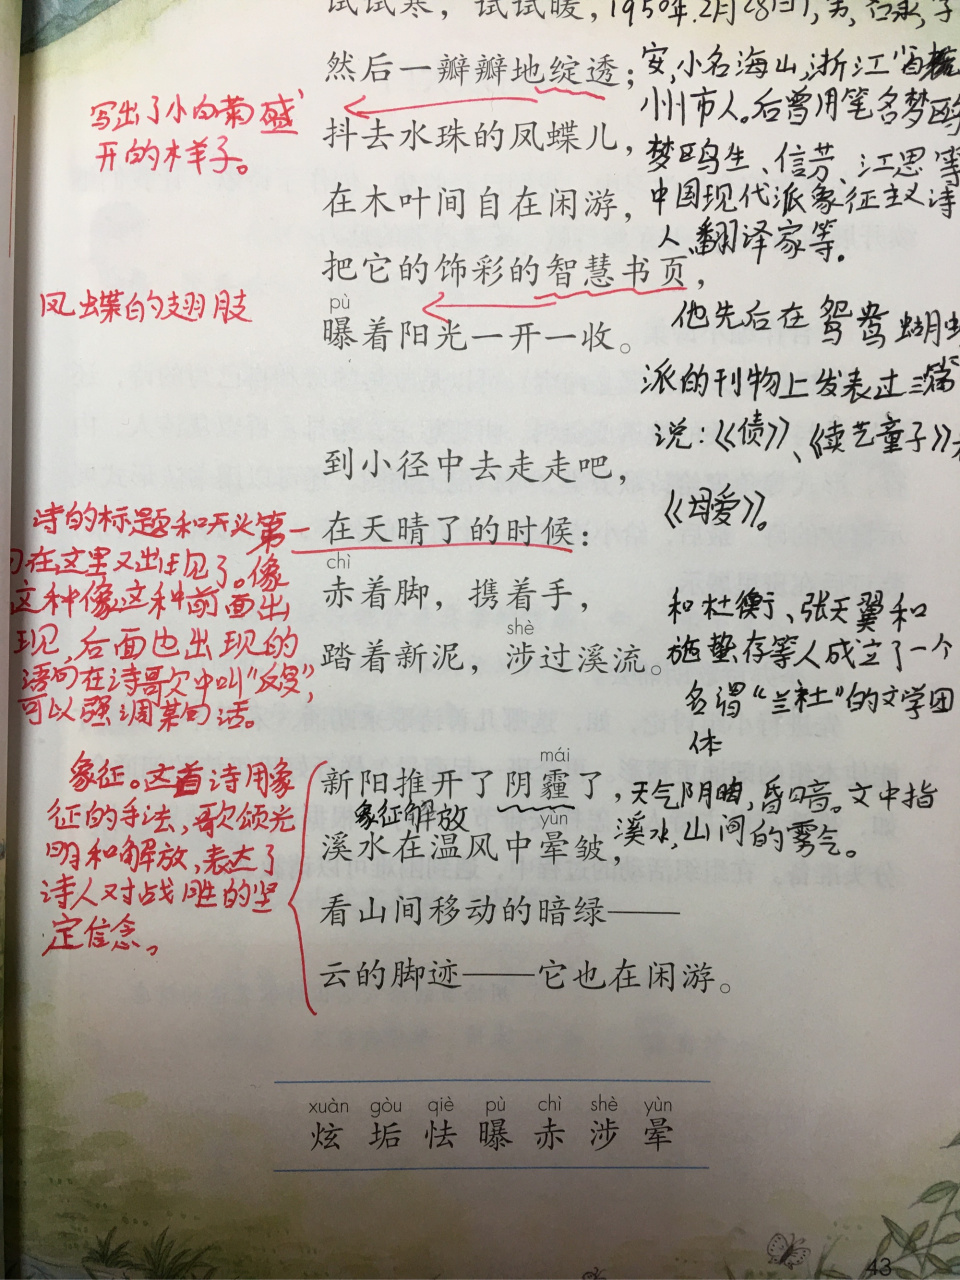 试试寒，试试暖，
1950年2月28日),男,
然后一瓣瓣地绽透；
抖去水珠的凤蝶儿，
在木叶间自在闲游，
把它的饰彩的智慧书页，
pù
曝着阳光一开一收。
到小径中去走走吧，
在天晴了的时候：
chì
赤着脚，携着手，
shè
踏着新泥，涉过溪流。
mái
新阳推开了阴霾了，
yùn
溪水在温风中晕皱，
看山间移动的暗绿——
云的脚迹——它也在闲游。
写出了小白菊盛
开的样子。
凤蝶的翅肢
诗的标题和开头第一
句在这里又出现了。像
这种像这种前面出
现，后面也出现的
语句在诗歌中叫“反复”，
可以强调某句话。
象征。这首诗用象
征的手法，歌颂光
明和解放，表达了
诗人对战胜的坚
定信念。
象征解放
安,小名海山,浙江省杭
州市人。后曾用笔名梦鸥
梦鸥生、信芳、江思等
中国现代派象征主义诗
人、翻译家等。
他先后在鸳鸯蝴
派的刊物上发表过三篇
说：《债》、《卖艺童子》
《母爱》。
和杜衡、张天翼和
施蛰存等人成立了一个
名谓“兰社”的文学团
体
天气阴晦，昏暗。文中指
溪水,山间的雾气。
xuàn gòu qiè pù chì shè yùn
炫 垢 怯 曝 赤 涉 晕
43